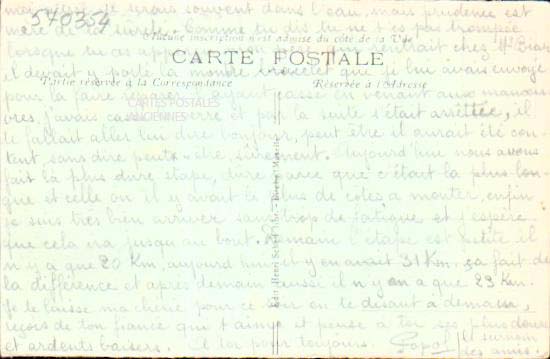 ma chérie je serais souvent dans l'eau, mais prudence est
570354
mère de la sûreté. Comme tu dis tu ne t'es pas trompée
Aucune inscription n'est admise du côté de la Vue
lorsque tu as rentrait chez
CARTE POSTALE
il devait y porter la montre bracelet que je lui avais envoyé
Partie réservée à la Correspondance
Réservée à l'Adresse
pour la faire réparer, ayant cassé en venant aux manoeu
CARTES POSTALES
ANCIENNES
vres, j'avais cassé verre et par la suite s'était arrêtée, il
te fallait aller lui dire bonjour, peut être il aurait été con-
tent, sans dire peut être, sûrement. Aujourd'hui nous avons
fait la plus dure étape, dure parce que c'était la plus lon-
gue et celle où il y avait le plus de côtes à monter, enfin
je suis très bien arriver sans trop de fatigue et j'espère
que cela ira jusqu'au bout. Demain l'étape est petite il
n'y a que 20 Km, aujourd'hui il y en avait 31 Km. ça fait de
la différence et après demain aussi il n'y en a que 23 Km.
Je te laisse ma chérie pour ce soir en te disant à demain,
reçois de ton fiancé qui t'aime et pense à toi ses plus doux
et ardents baisers. A toi pour toujours.